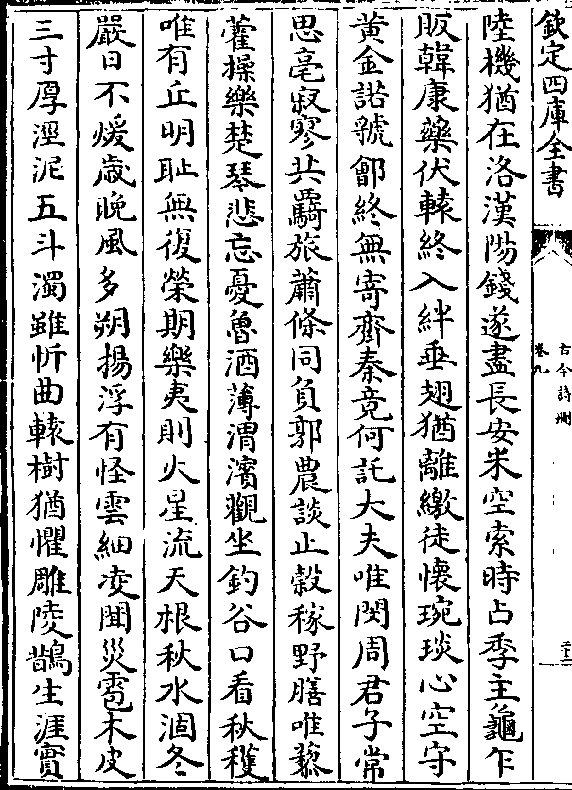 欽定四庫全書
古今詩刪
卷九
陸機猶在洛漢陽錢遂盡長安米空索時占季主龜乍
販韓康藥伏轅終入絆垂翅猶離繳徒懷琬琰心空守
黄金諾虢鄶終無寄齊秦竟何託大夫唯閔周君子常
思亳寂寥共羇旅蕭條同負郭農談止穀稼野膳唯藜
藿操樂楚琴悲忘憂魯酒薄渭濱觀坐釣谷口看秋穫
唯有丘明耻無復榮期樂夷則火星流天根秋水涸冬
嚴日不煖歲晚風多朔揚浮有怪雲細凌聞災雹木皮
三寸厚涇泥五斗濁雖忻曲轅樹猶懼雕陵鵲生涯實